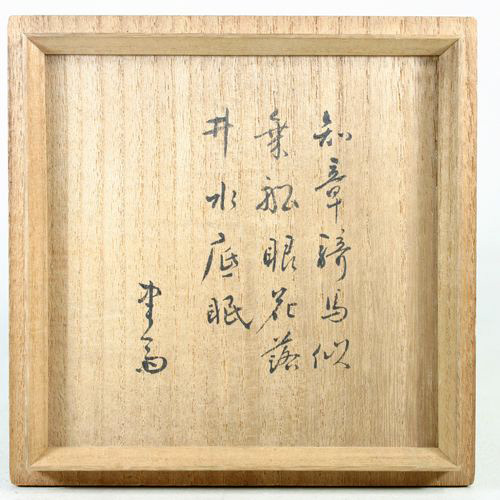 知章騎馬似
乗舩眼花落
井水底眠